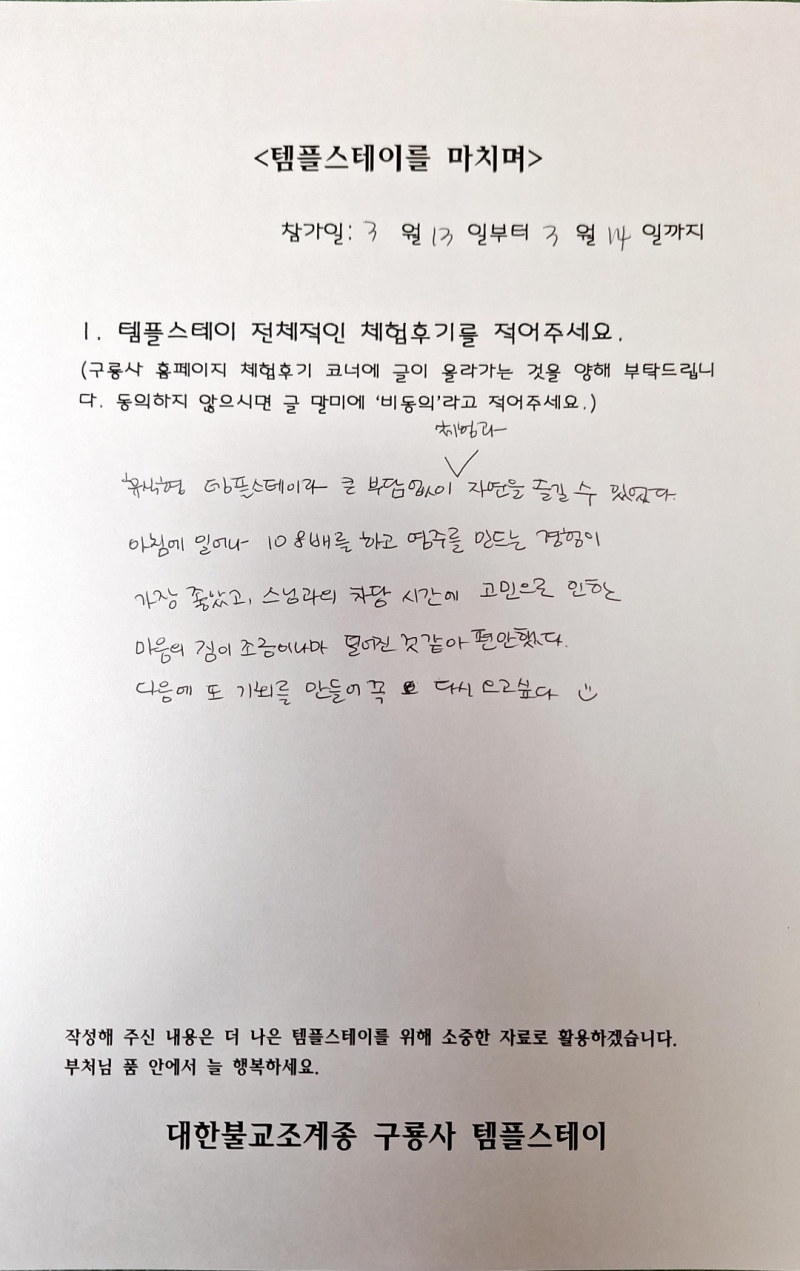 <템플스테이를 마치며>
참가일: 3 월 13 일부터 3 월 14 일까지
1. 템플스테이 전체적인 체험후기를 적어주세요.
(구룡사 홈페이지 체험후기 코너에 글이 올라가는 것을 양해 부탁드립니
다. 동의하지 않으시면 글 말미에 '비동의'라고 적어주세요.)
체험과
휴식형 템플스테이라 큰 부담없이 자연을 즐길 수 있었다.
아침에 일어나 108배를 하고 염주를 만드는 경험이
가장 좋았고, 스님과의 차담 시간에 고민으로 인한
마음의 짐이 조금이나마 덜어진 것 같아 편안했다.
다음에 또 기회를 만들어 꼭 다시 오고싶다
작성해 주신 내용은 더 나은 템플스테이를 위해 소중한 자료로 활용하겠습니다.
부처님 품 안에서 늘 행복하세요.
대한불교조계종 구룡사 템플스테이